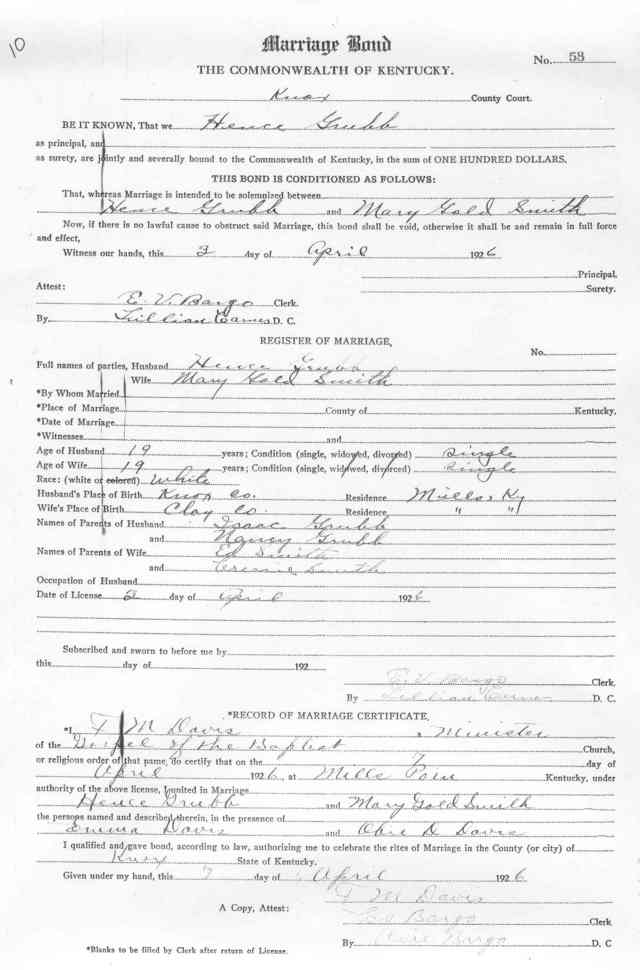 10
Marriage Bond
No. 58
THE COMMONWEALTH OF KENTUCKY.
Knox County Court.
BE IT KNOWN, That we Hence Grubb
as principal, and
as surety, are jointly and severally bound to the Commonwealth of Kentucky, in the sum of ONE HUNDRED DOLLARS.
THIS BOND IS CONDITIONED AS FOLLOWS:
That, whereas Marriage is intended to be solemnized between
Hence Grubb and Mary Gold Smith
Now, if there is no lawful cause to obstruct said Marriage, this bond shall be void, otherwise it shall be and remain in full force
and effect,
Witness our hands, this 2 day of April 1926
Principal.
Surety.
Attest:
E. V. Bargo Clerk.
By Lillian Eames D. C.
REGISTER OF MARRIAGE,
No.
Full names of parties, Husband Hence Grubb
Wife Mary Gold Smith
*By Whom Married
*Place of Marriage County of Kentucky.
*Date of Marriage
*Witnesses and
Age of Husband 19 years; Condition (single, widowed, divorced) single
Age of Wife 19 years; Condition (single, widowed, divorced) single
Race: (white or colored) White
Husband's Place of Birth Knox Co. Residence Mills, Ky
Wife's Place of Birth Clay Co. Residence, " "
Names of Parents of Husband Isaac Grubb
and Nancy Grubb
Names of Parents of Wife Ed Smith
and Smith
Occupation of Husband
Date of License 2 day of April 1926
Subscribed and sworn to before me by
this day of 192
E. V. Bargo Clerk.
By Lillian Eames D. C.
*RECORD OF MARRIAGE CERTIFICATE,
*I F M Davis , Minister
of the Gospel of the Baptist Church,
or religious order of that name, do certify that on the 7 day of
April 1926, at Mills Kentucky, under
authority of the above license, I united in Marriage
Hence Grubb and Mary Gold Smith
the persons named and described therein, in the presence of
Emma Davis and Obie D Davis
I qualified and gave bond, according to law, authorizing me to celebrate the rites of Marriage in the County (or city) of
Knox State of Kentucky.
Given under my hand, this 7 day of April 1926
F M Davis
A Copy, Attest: Bargo Clerk
By Bargo D. C
*Blanks to be filled by Clerk after return of License.